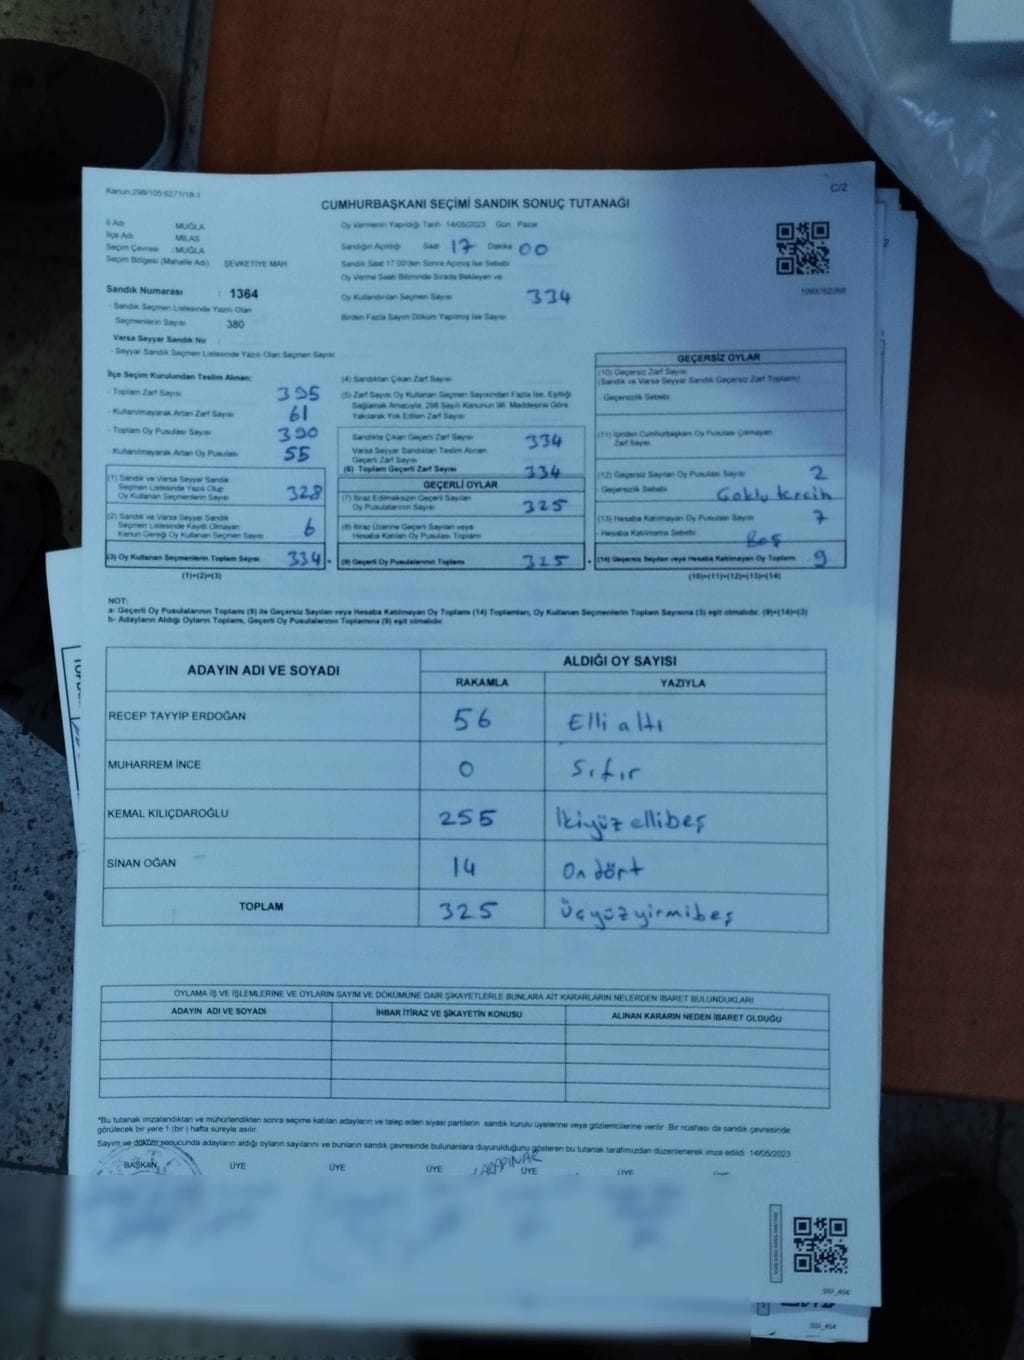 Kanun:298/105;6271/18-1
C/2
CUMHURBAŞKANI SEÇİMİ SANDIK SONUÇ TUTANAĞI
İl Adı : MUĞLA
İlçe Adı : MİLAS
Seçim Çevresi : MUĞLA
Seçim Bölgesi (Mahalle Adı) ŞEVKETİYE MAH
Sandık Numarası : 1364
- Sandık Seçmen Listesinde Yazılı Olan
Seçmenlerin Sayısı : 380
Varsa Seyyar Sandık No :
- Seyyar Sandık Seçmen Listesinde Yazılı Olan Seçmen Sayısı
Oy Vermenin Yapıldığı Tarih 14/05/2023 Gün Pazar
Sandığın Açıldığı Saat 17 Dakika 00
Sandık Saat 17:00'den Sonra Açılmış İse Sebebi
Oy Verme Saati Bitiminde Sırada Bekleyen ve
Oy Kullandırılan Seçmen Sayısı 334
Birden Fazla Sayım Döküm Yapılmış İse Sayısı
İlçe Seçim Kurulundan Teslim Alınan:
- Toplam Zarf Sayısı 395
- Kullanılmayarak Artan Zarf Sayısı 61
- Toplam Oy Pusulası Sayısı 390
- Kullanılmayarak Artan Oy Pusulası 55
(1) Sandık ve Varsa Seyyar Sandık
Seçmen Listesinde Yazılı Olup
Oy Kullanan Seçmenlerin Sayısı 328
(2) Sandık ve Varsa Seyyar Sandık
Seçmen Listesinde Kayıtlı Olmayan
Kanun Gereği Oy Kullanan Seçmen Sayısı 6
(3) Oy Kullanan Seçmenlerin Toplam Sayısı 334 =
(1)+(2)=(3)
(4) Sandıktan Çıkan Zarf Sayısı
(5) Zarf Sayısı Oy Kullanan Seçmen Sayısından Fazla İse, Eşitliği
Sağlamak Amacıyla, 298 Sayılı Kanunun 98. Maddesine Göre
Yakılarak Yok Edilen Zarf Sayısı
Sandıkta Çıkan Geçerli Zarf Sayısı 334
Varsa Seyyar Sandıktan Teslim Alınan
Geçerli Zarf Sayısı
(6) Toplam Geçerli Zarf Sayısı 334
GEÇERLİ OYLAR
(7) İtiraz Edilmeksizin Geçerli Sayılan
Oy Pusulasının Sayısı 325
(8) İtiraz Üzerine Geçerli Sayılan veya
Hesaba Katılan Oy Pusulası Toplamı
(9) Geçerli Oy Pusulalarının Toplamı 325 +
GEÇERSİZ OYLAR
(10) Geçersiz Zarf Sayısı
(Sandık ve Varsa Seyyar Sandık Geçersiz Zarf Toplamı)
- Geçersizlik Sebebi
(11) İçinden Cumhurbaşkanı Oy Pusulası Çıkmayan
Zarf Sayısı
(12) Geçersiz Sayılan Oy Pusulası Sayısı 2
- Geçersizlik Sebebi Çoklu tercih
(13) Hesaba Katılmayan Oy Pusulası Sayısı 7
- Hesaba Katılmama Sebebi Boş
(14) Geçersiz Sayılan veya Hesaba Katılmayan Oy Toplamı 9
(10)+(11)+(12)+(13)=(14)
NOT:
a- Geçerli Oy Pusulalarının Toplamı (9) ile Geçersiz Sayılan veya Hesaba Katılmayan Oy Toplamı (14) Toplamları, Oy Kullanan Seçmenlerin Toplam Sayısına (3) eşit olmalıdır. (9)+(14)=(3)
b- Adayların Aldığı Oyların Toplamı, Geçerli Oy Pusulalarının Toplamına (9) eşit olmalıdır.
ADAYIN ADI VE SOYADI
ALDIĞI OY SAYISI
RAKAMLA YAZIYLA
RECEP TAYYİP ERDOĞAN 56 Elli altı
MUHARREM İNCE 0 Sıfır
KEMAL KILIÇDAROĞLU 255 İkiyüz ellibeş
SİNAN OĞAN 14 On dört
TOPLAM 325 Üçyüzyirmibeş
OYLAMA İŞ VE İŞLEMLERİNE VE OYLARIN SAYIM VE DÖKÜMÜNE DAİR ŞİKAYETLERLE BUNLARA AİT KARARLARIN NELERDEN İBARET BULUNDUKLARI
ADAYIN ADI VE SOYADI İHBAR İTİRAZ VE ŞİKAYETİN KONUSU ALINAN KARARIN NEDEN İBARET OLDUĞU
*Bu tutanak imzalandıktan ve mühürlendikten sonra seçime katılan adayların ve talep eden siyasi partilerin sandık kurulu üyelerine veya gözlemcilerine verilir. Bir nüshası da sandık çevresinde
görülecek bir yere 1 (bir) hafta süreyle asılır.
Sayım ve döküm sonucunda adayların aldığı oyların sayılarını ve bunların sandık çevresinde bulunanlara duyurulduğunu gösteren bu tutanak tarafımızdan düzenlenerek imza edildi. 14/05/2023
BAŞKAN ÜYE ÜYE ÜYE ÜYE ÜYE
SSI_404
SSI_404